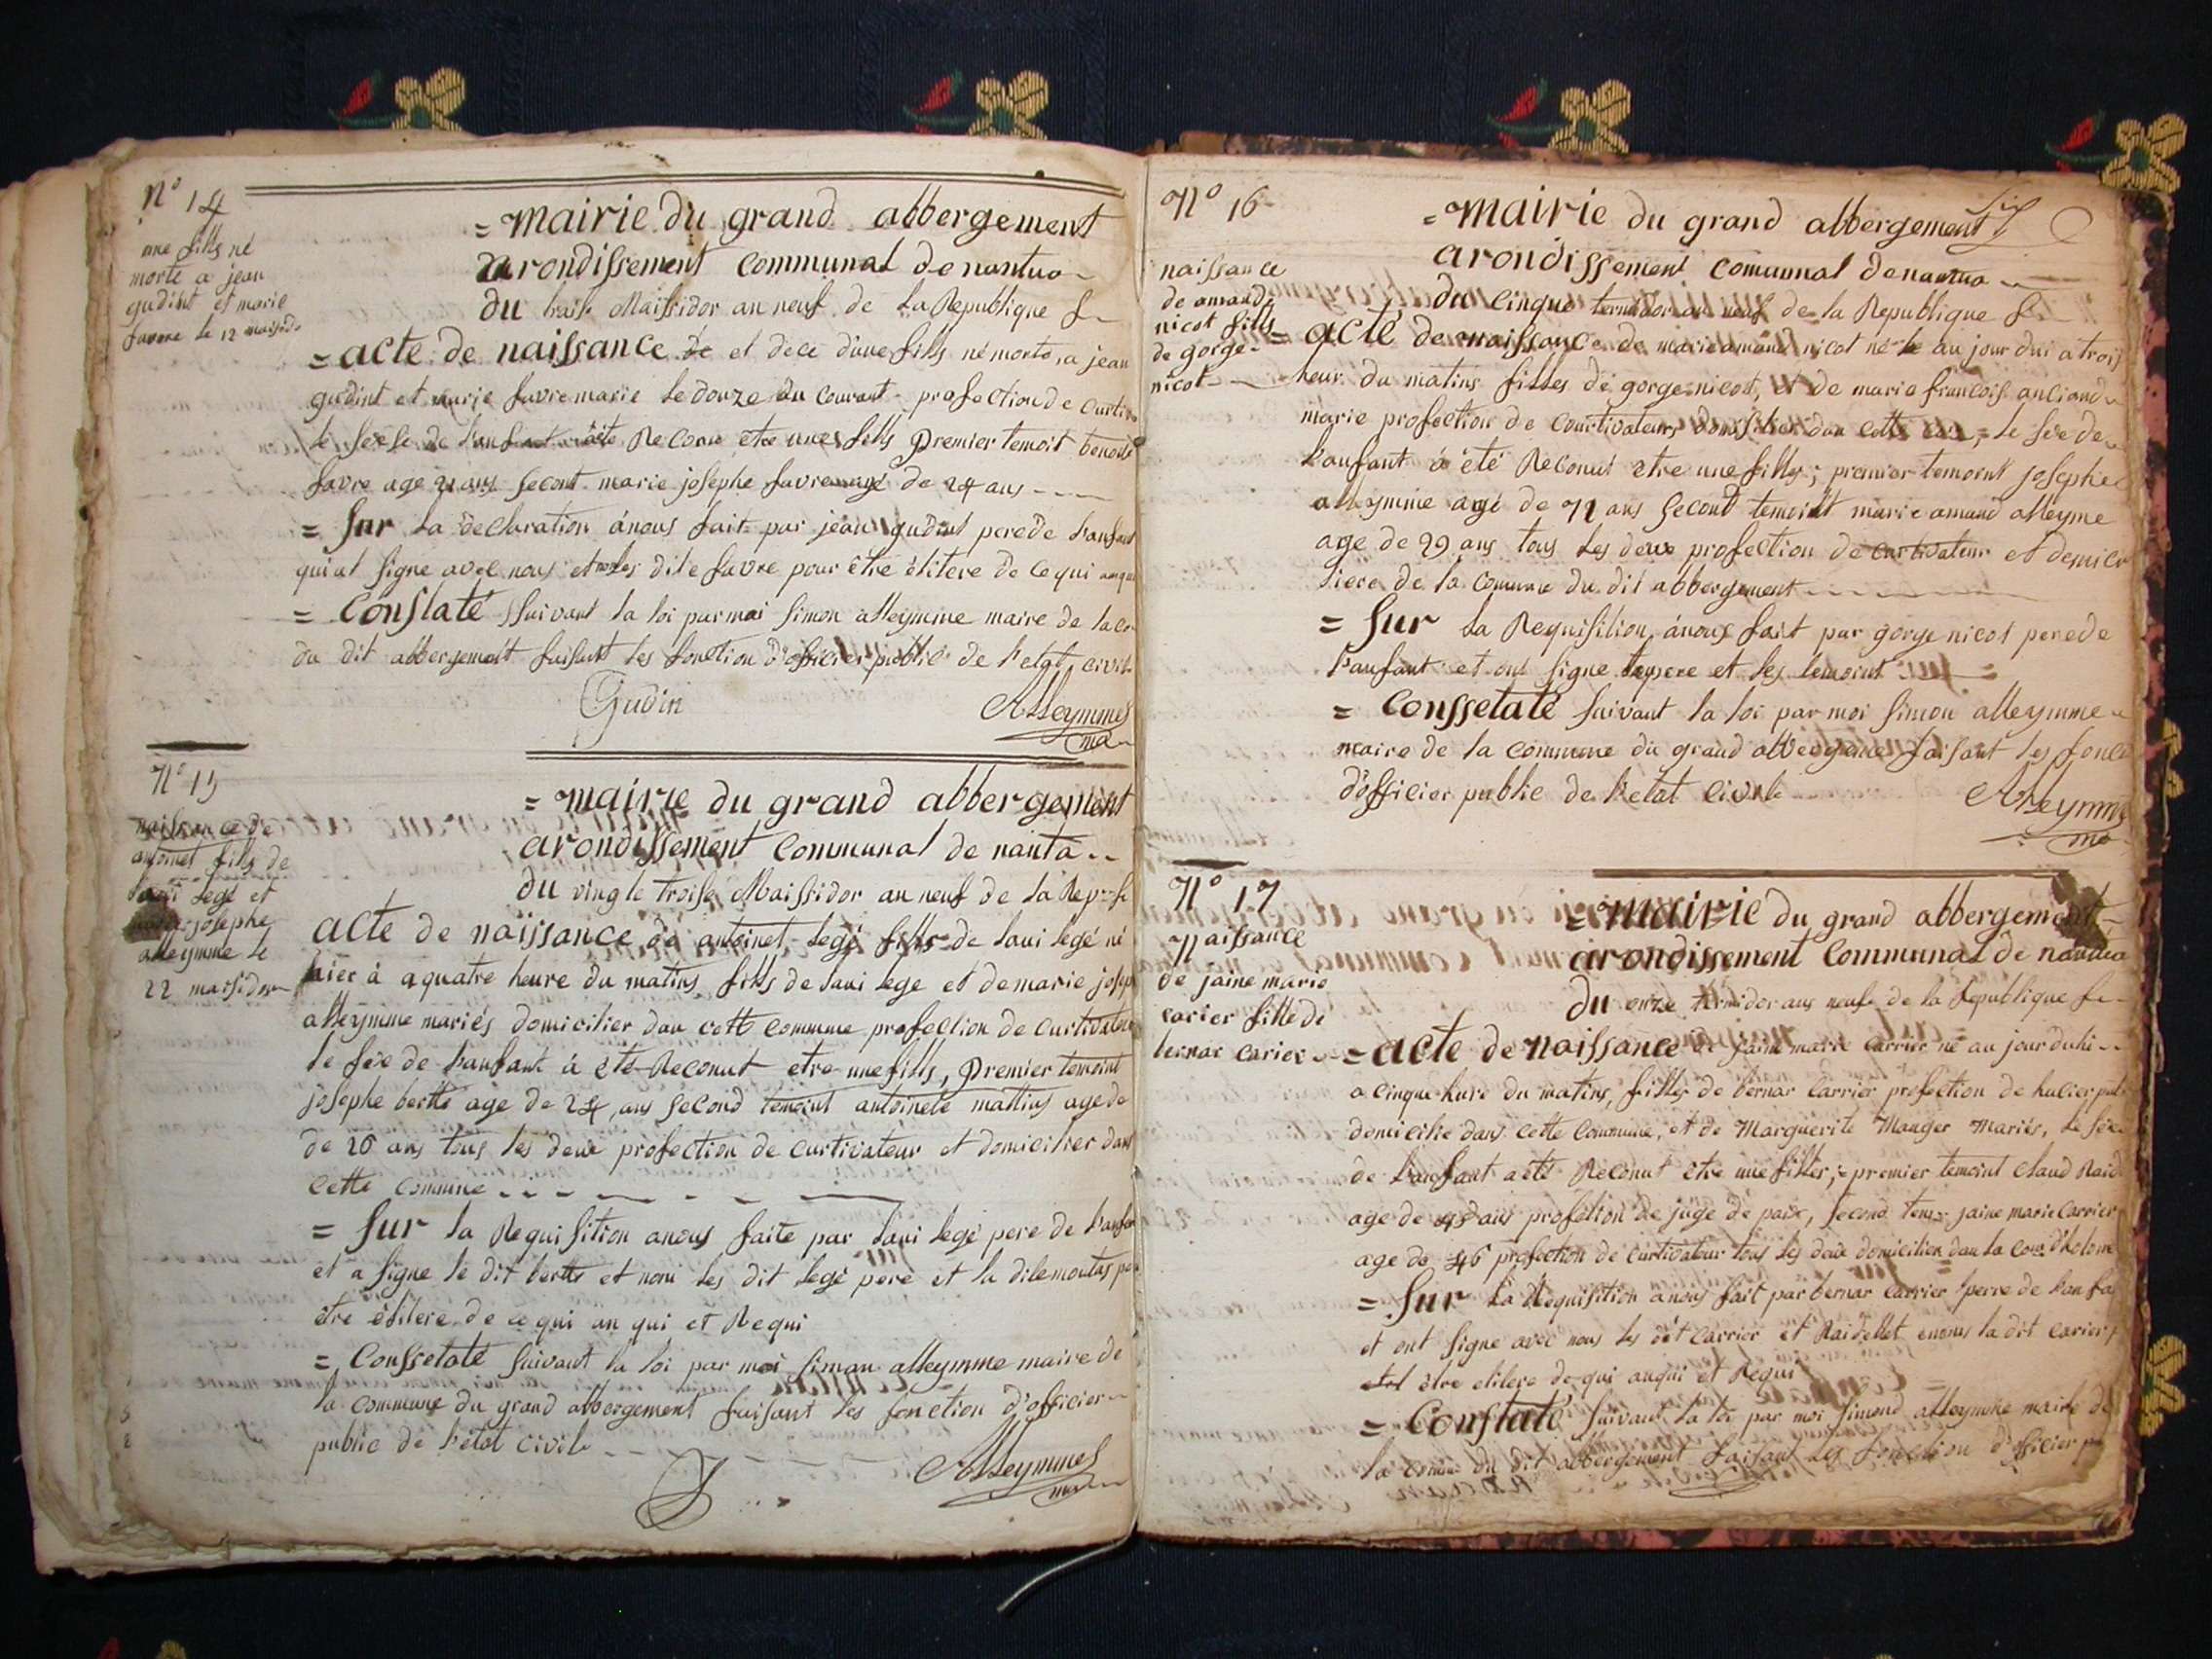 N° 14
une fills né
morte a jean
gudint et marie
favre le 12 maissido
= mairie du grand abbergement
arondissement communal de nantua
du treise Maissidor an neuf de la Republique f
= acte de naissance de et dece d'une fills né morte a jean
gudint et marie favre marie le douze du courant profection de curtiv
le sexse de l'anfant a été Reconu etre une fills premier temoit benoit
favre age 21 ans second marie josephe favre age de 24 ans
= Sur la declaration a nous fait par jean gudint pere de l'anfant
qui at signe avec nous et non les dite favre pour être élitere de ce qui
= Constaté suivant la loi par moi simon alleymme maire de la co
du dit abbergement faisant les fonction d'officier public de l'etat civil
Gudin
Alleymme
ma
N° 15
naissance de
antoinet fills de
legé et
josephe
alleymme le
22 maisidor
= mairie du grand abbergement
arondissement communal de nanta
du vingte troise Maissidor an neuf de la Rep
acte de naissance de antoinet legé fills de laui legé né
hier à quatre heure du matins fills de laui lege et de marie josep
alleymme mariés domicilier dan cett commune profection de curtivateur
le sexe de l'anfant à eté Reconut etre une fills, premier temoint
josephe bertte age de 24 ans second temoint antoinete mattius age de
de 20 ans tous les deux profection de curtivateur et domicilier dans
cette commune
= Sur la Requisition a nous faite par laui legé pere de l'anfan
et a signe le dit bertte et noni les dit legé pere et la dite
etre éilitere de ce qui an qui et Requi
= Conssetaté suivant la loi par moi simon alleymme maire de
la commune du grand abbergement faisant les fonction d'officier
public de l'état civile
Alleymme
N° 16
naissance
de amand
nicot fills
de gorge
nicot
= mairie du grand albergement
arondissement comunal de nantua
du cinque termidor an neuf de la Republique f
= acte de naissance de marie amand nicot né le au jour dui a trois
heur du matins filles de gorge nicot, et de marie francois anciand
marie profection de courtivateurs domisilier dan cette , le sexe de
l'anfant à été Reconut etre une filles; premier temoint josephe
alleymme agé de 71 ans second temoint marie amand alleyme
age de 29 ans tous les deux profection de curtivateur et
de la comune du dit abbergement
= Sur la Requisition a nous fait par gorge nicot pere de
l'anfant et ont signe le pere et les temoint
= Conssetaté suivant la loi par moi simon alleymme
maire de la commune du grand abbergeme faisant les fonct
d'officier public de l'etat civile
Alleymme
ma
N° 17
Naissance
de jaine marie
carier fille de
bernar carier
= mairie du grand abbergement
arondissement communal de nantua
du onze termidor ans neufe de la Republique f
= acte de naissance de jaine marie carrier né au jour duhi
a cinque hure du matins, filles de bernar carrier profection de hucier publ
domicilie dans cette commune, et de Marguerite Mauger Mariés, le sexe
de l'anfant a eté Reconut etre une filles; premier temoint claud Raid
age de 45 ans profetion de juge de paix, second tem jaine marie carrier
age de 46 profection de curtivateur tous les deux domicilier dan la com d'holone
= Sur la Requisition a nous fait par bernar carrier perre de l'anfa
et ont signe avec nous les dit carrier et Raidellet enonis la dit carier
etre elitere de qui anqui et Requi
= Constaté suivant la loi par moi simond alleymme maire de
la comun du dit abbergement faisant les fonction d'officier pu